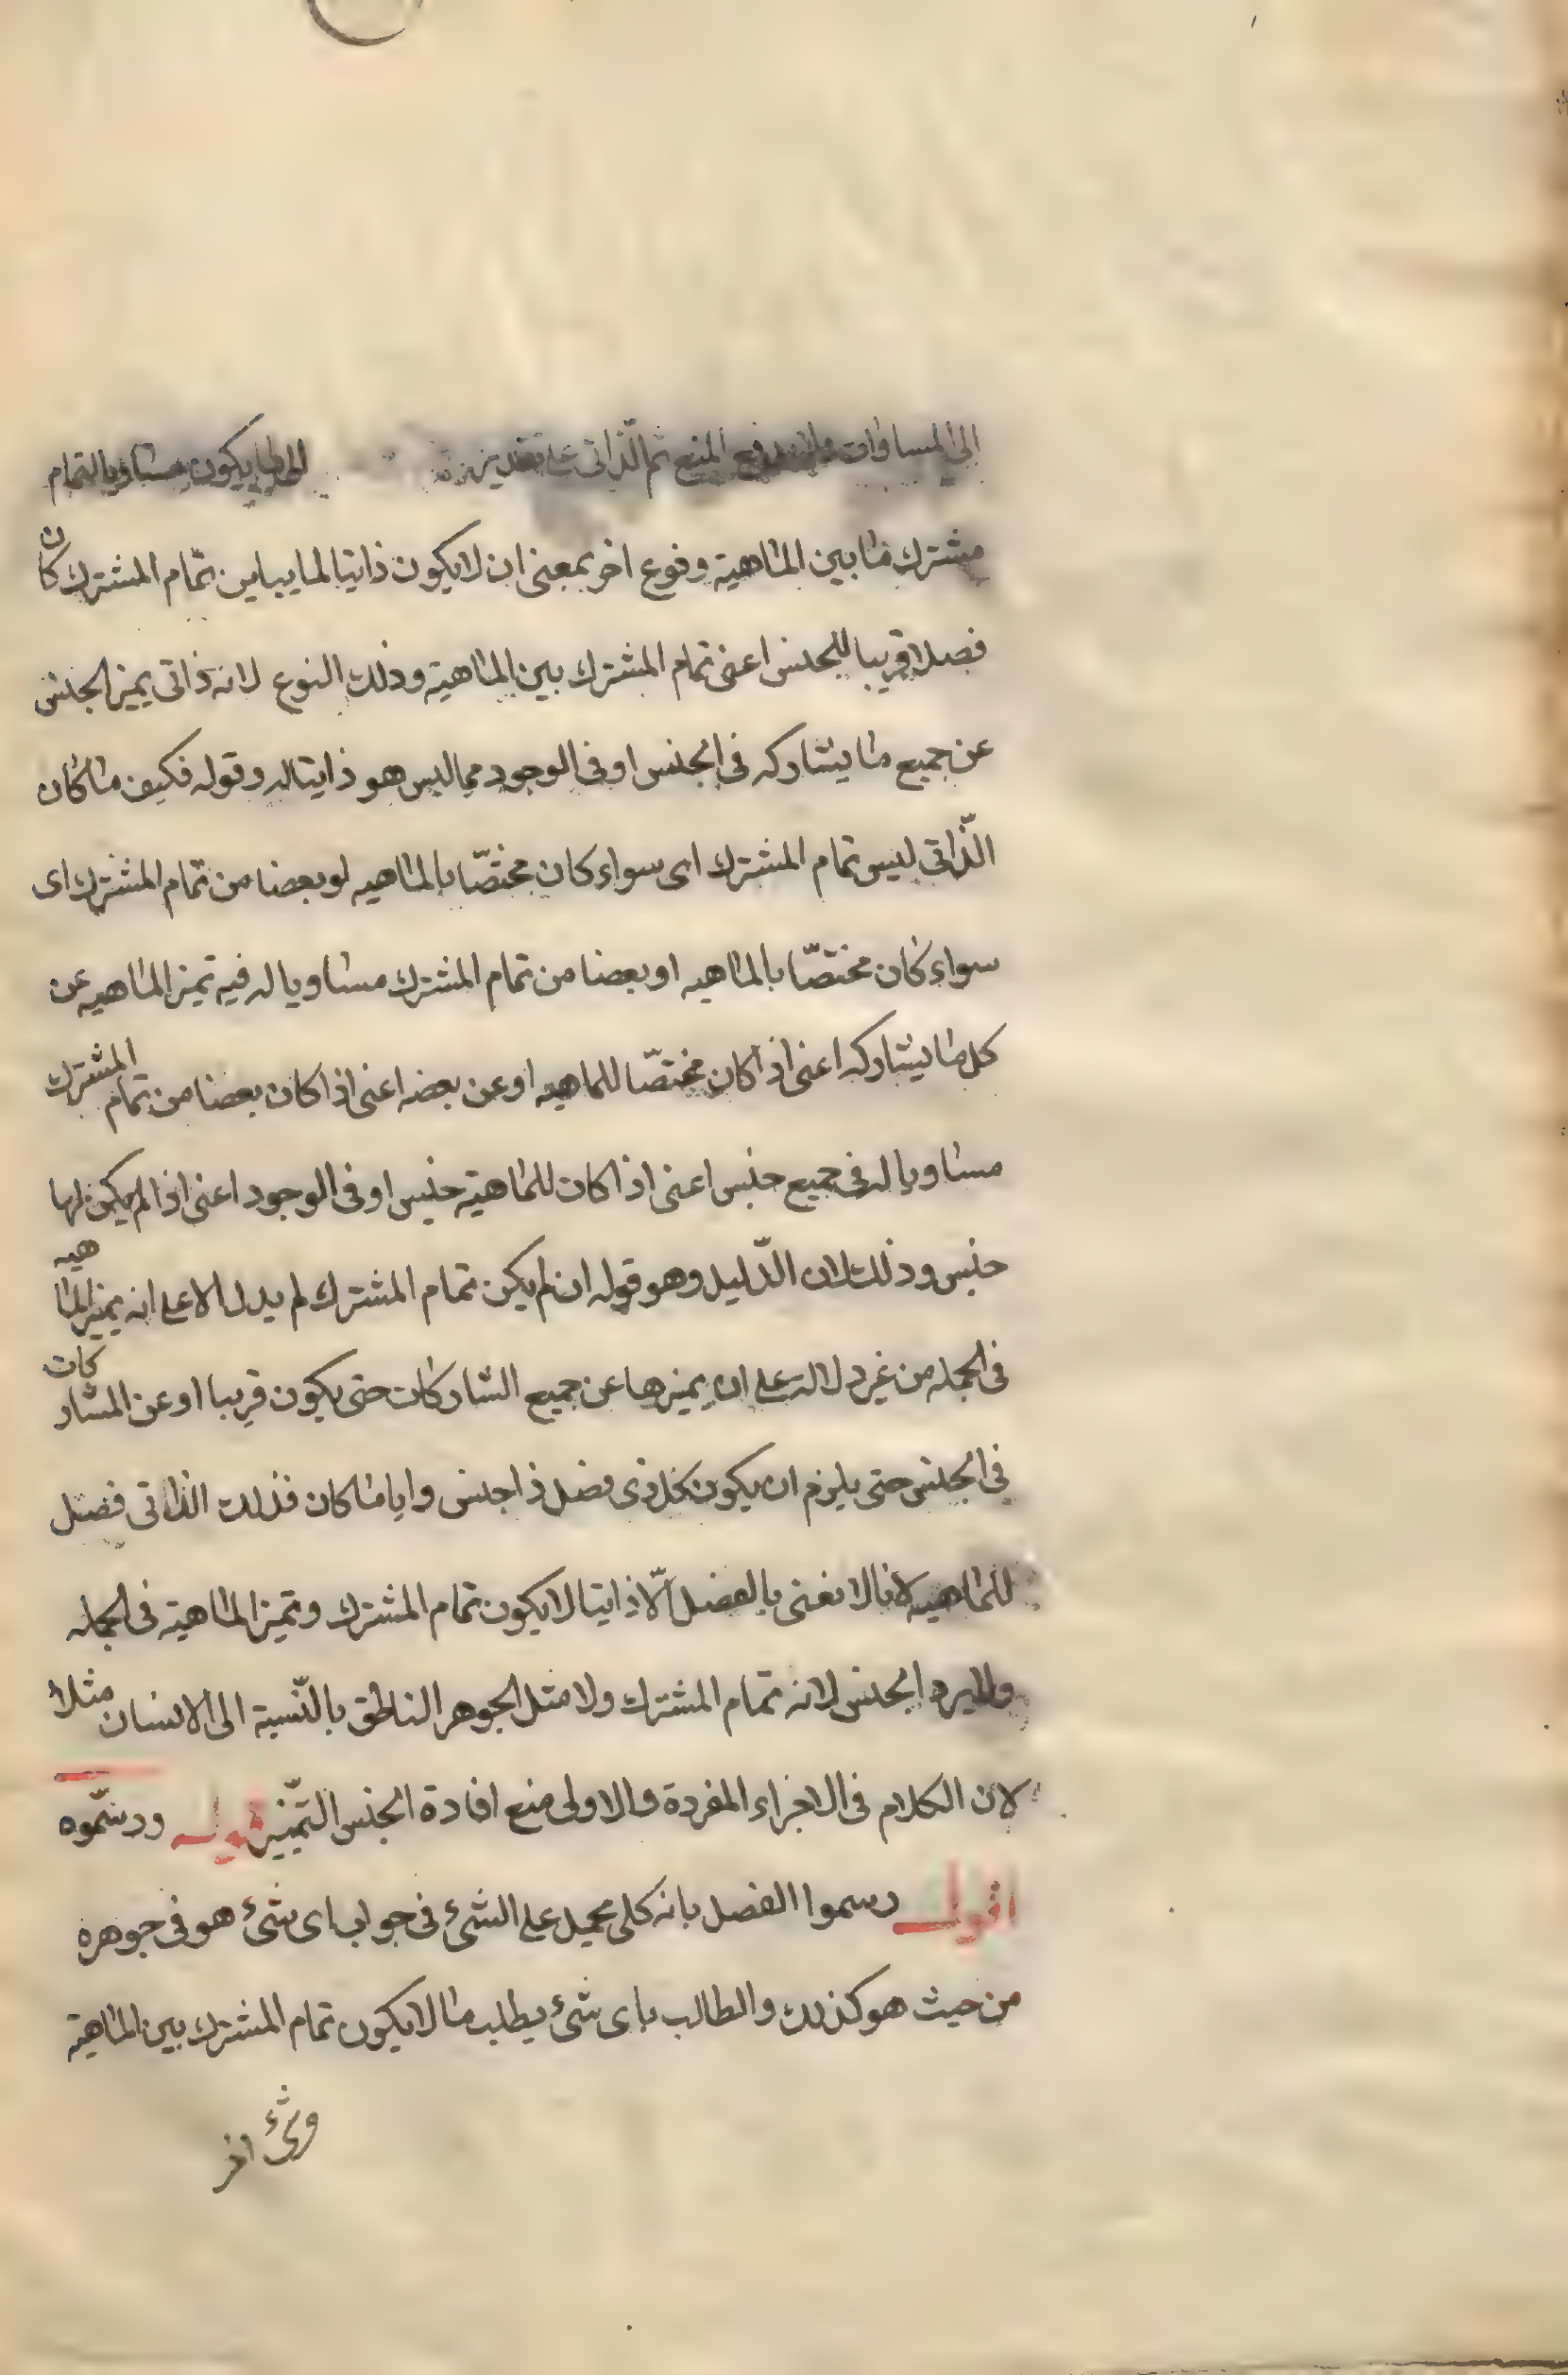 الى المساوات المنع ثم الذاتى على تقدير يكون مساويا لتمام
مشترك ما بين الماهية ونوع اخر بمعنى ان لا يكون ذاتيا لما يباين تمام المشترك كان
فصلا قريبا للجنس اعنى تمام المشترك بين الماهية وذلك النوع لانه ذاتى يميز الجنس
عن جميع ما يشاركه فى الجنس او فى الوجود مما ليس هو ذاتيا له وقوله فكيف ما كان
الذّاتى ليس تمام المشترك اى سواء كان مختصّا بالماهيه لو بعضا من تمام المشترك اى
سواء كان مختصّا بالماهيه او بعضا من تمام المشترك مساويا له فيه تميز الماهيه عن
كل ما يشاركه اعنى اذا كان مختصّا للماهيه او عن بعضه اعنى اذا كان بعضا من تمام المشترك
مساويا له فى جميع جنس اعنى اذا كان للماهية جنس او فى الوجود اعنى اذا لم يكن لها
جنس وذلك لان الدّليل وهو قوله ان لم يكن تمام المشترك لم يدل الا على انه يميز الماهيه
فى الجمله من غير دلالة على ان يميزها عن جميع الشاركات حتى يكون قريبا او عن المشاركات
فى الجنس حتى يلزم ان يكون كل ذى فصل ذا جنس وايا ما كان فذلك الذاتى فصل
للماهيه لانا لا نعنى بالفصل الّا ذاتيا لا يكون تمام المشترك وتميز الماهية فى الجمله
ولا يرد الجنس لانه تمام المشترك ولا مثل الجوهر الناطق بالنّسبة الى الانسان مثلا
لان الكلام فى الاجزاء المفردة والاولى منع افادة الجنس التّميز قوله ورسّموه
اقول رسموا الفصل بانه كلى يحمل على الشئ فى جواب اى شئ هو فى جوهره
من حيث هو كذلك والطالب باى شئ يطلب ما لا يكون تمام المشترك بين الماهية
وشئ اخر